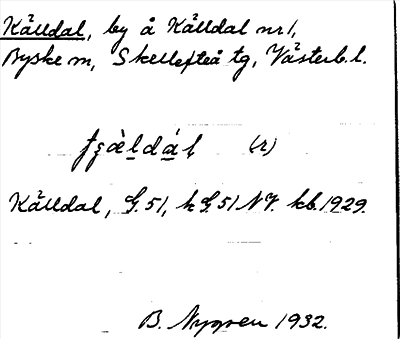 Källdal, by å Källdal nr 1,
Byske sn, Skellefteå tg, Västerb. l.
(r)
Källdal, G. 51, k G 51 NV. kb. 1929.
B. Nygren 1932.